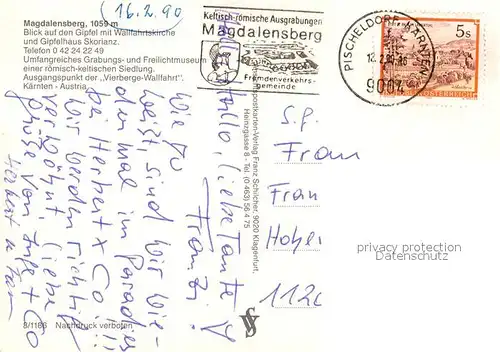 (16.2.90
Magdalensberg, 1059 m
Blick auf den Gipfel mit Wallfahrtskirche
und Gipfelhaus Skorianz.
Telefon 0 42 24 22 49
Umfangreiches Grabungs- und Freilichtmuseum
einer römisch-keltischen Siedlung.
Ausgangspunkt der „Vierberge-Wallfahrt".
Kärnten - Austria
Keltisch-römische Ausgrabungen
Magdalensberg
Fremdenverkehrs-
gemeinde
PISCHELDORF, KÄRNTEN
9064
5s
REPUBLIK ÖSTERREICH
Hallo, liebe Tante
Franzi!
Wie Du
weißt sind wir wie-
der mal im Paradies
bei Herbert & Co!!!
Wir werden richtig
verwöhnt. Liebe
Grüße von Inge & Co
Herbert u. Fam
Postkarten-Verlag Franz Schilcher, 9020 Klagenfurt,
Heinzgasse 8 - Tel. (0 463) 56 4 75
S.g.
Frau
Fran
Hohen
112
protected by copyright
Datenschutz
8/1186 Nachdruck verboten